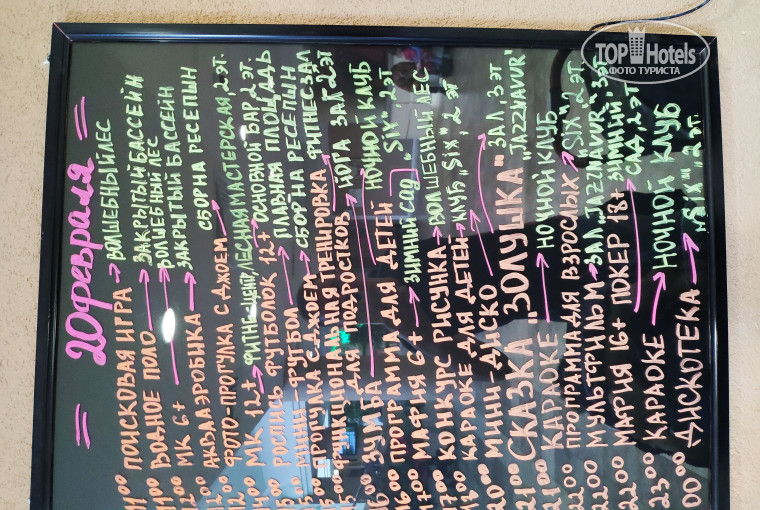 TOPHotels
ФОТО ТУРИСТА
= 20 февраля =
11:00 ПОИСКОВАЯ ИГРА → ВОЛШЕБНЫЙ ЛЕС
ВОДНОЕ ПОЛО → ЗАКРЫТЫЙ БАССЕЙН
МК 6+ → ВОЛШЕБНЫЙ ЛЕС
АКВААЭРОБИКА → ЗАКРЫТЫЙ БАССЕЙН
ФОТО-ПРОГУЛКА С ДЖОЕМ → СБОР НА РЕСЕПШН
МК 12+ → ЛЕСНАЯ МАСТЕРСКАЯ, 2 ЭТ.
РОСПИСЬ ФУТБОЛОК 12+ → ОСНОВНОЙ БАР, 2 ЭТ.
МИНИ-ФУТБОЛ → ГЛАВНАЯ ПЛОЩАДЬ
ПРОГУЛКА С ДЖОЕМ → СБОР НА РЕСЕПШН
ФУНКЦИОНАЛЬНАЯ ТРЕНИРОВКА → ФИТНЕС ЗАЛ
ДЛЯ ПОДРОСТКОВ → ЙОГА ЗАЛ 2 ЭТ
ЗУМБА → НОЧНОЙ КЛУБ
16:00 ПРОГРАММА ДЛЯ ДЕТЕЙ "SIX", 2 ЭТ
17:00 МАФИЯ 6+ → ЗИМНИЙ САД
17:00 КОНКУРС РИСУНКА → ВОЛШЕБНЫЙ ЛЕС
КАРАОКЕ ДЛЯ ДЕТЕЙ → КЛУБ "SIX", 2 ЭТ
20:00 МИНИ-ДИСКО
21:00 СКАЗКА "ЗОЛУШКА" ЗАЛ, 3 ЭТ "JAZZNAVUR"
21:00 КАРАОКЕ → НОЧНОЙ КЛУБ
22:00 ПРОГРАММА ДЛЯ ВЗРОСЛЫХ → "SIX", 2 ЭТ.
22:00 МУЛЬТФИЛЬМ → ЗАЛ "JAZZNAVUR", 3 ЭТ.
22:00 МАФИЯ 16+ ПОКЕР 18+ → ЗИМНИЙ САД, 2 ЭТ
23:00 КАРАОКЕ → НОЧНОЙ КЛУБ
00:00 ДИСКОТЕКА → "SIX", 2 ЭТ.